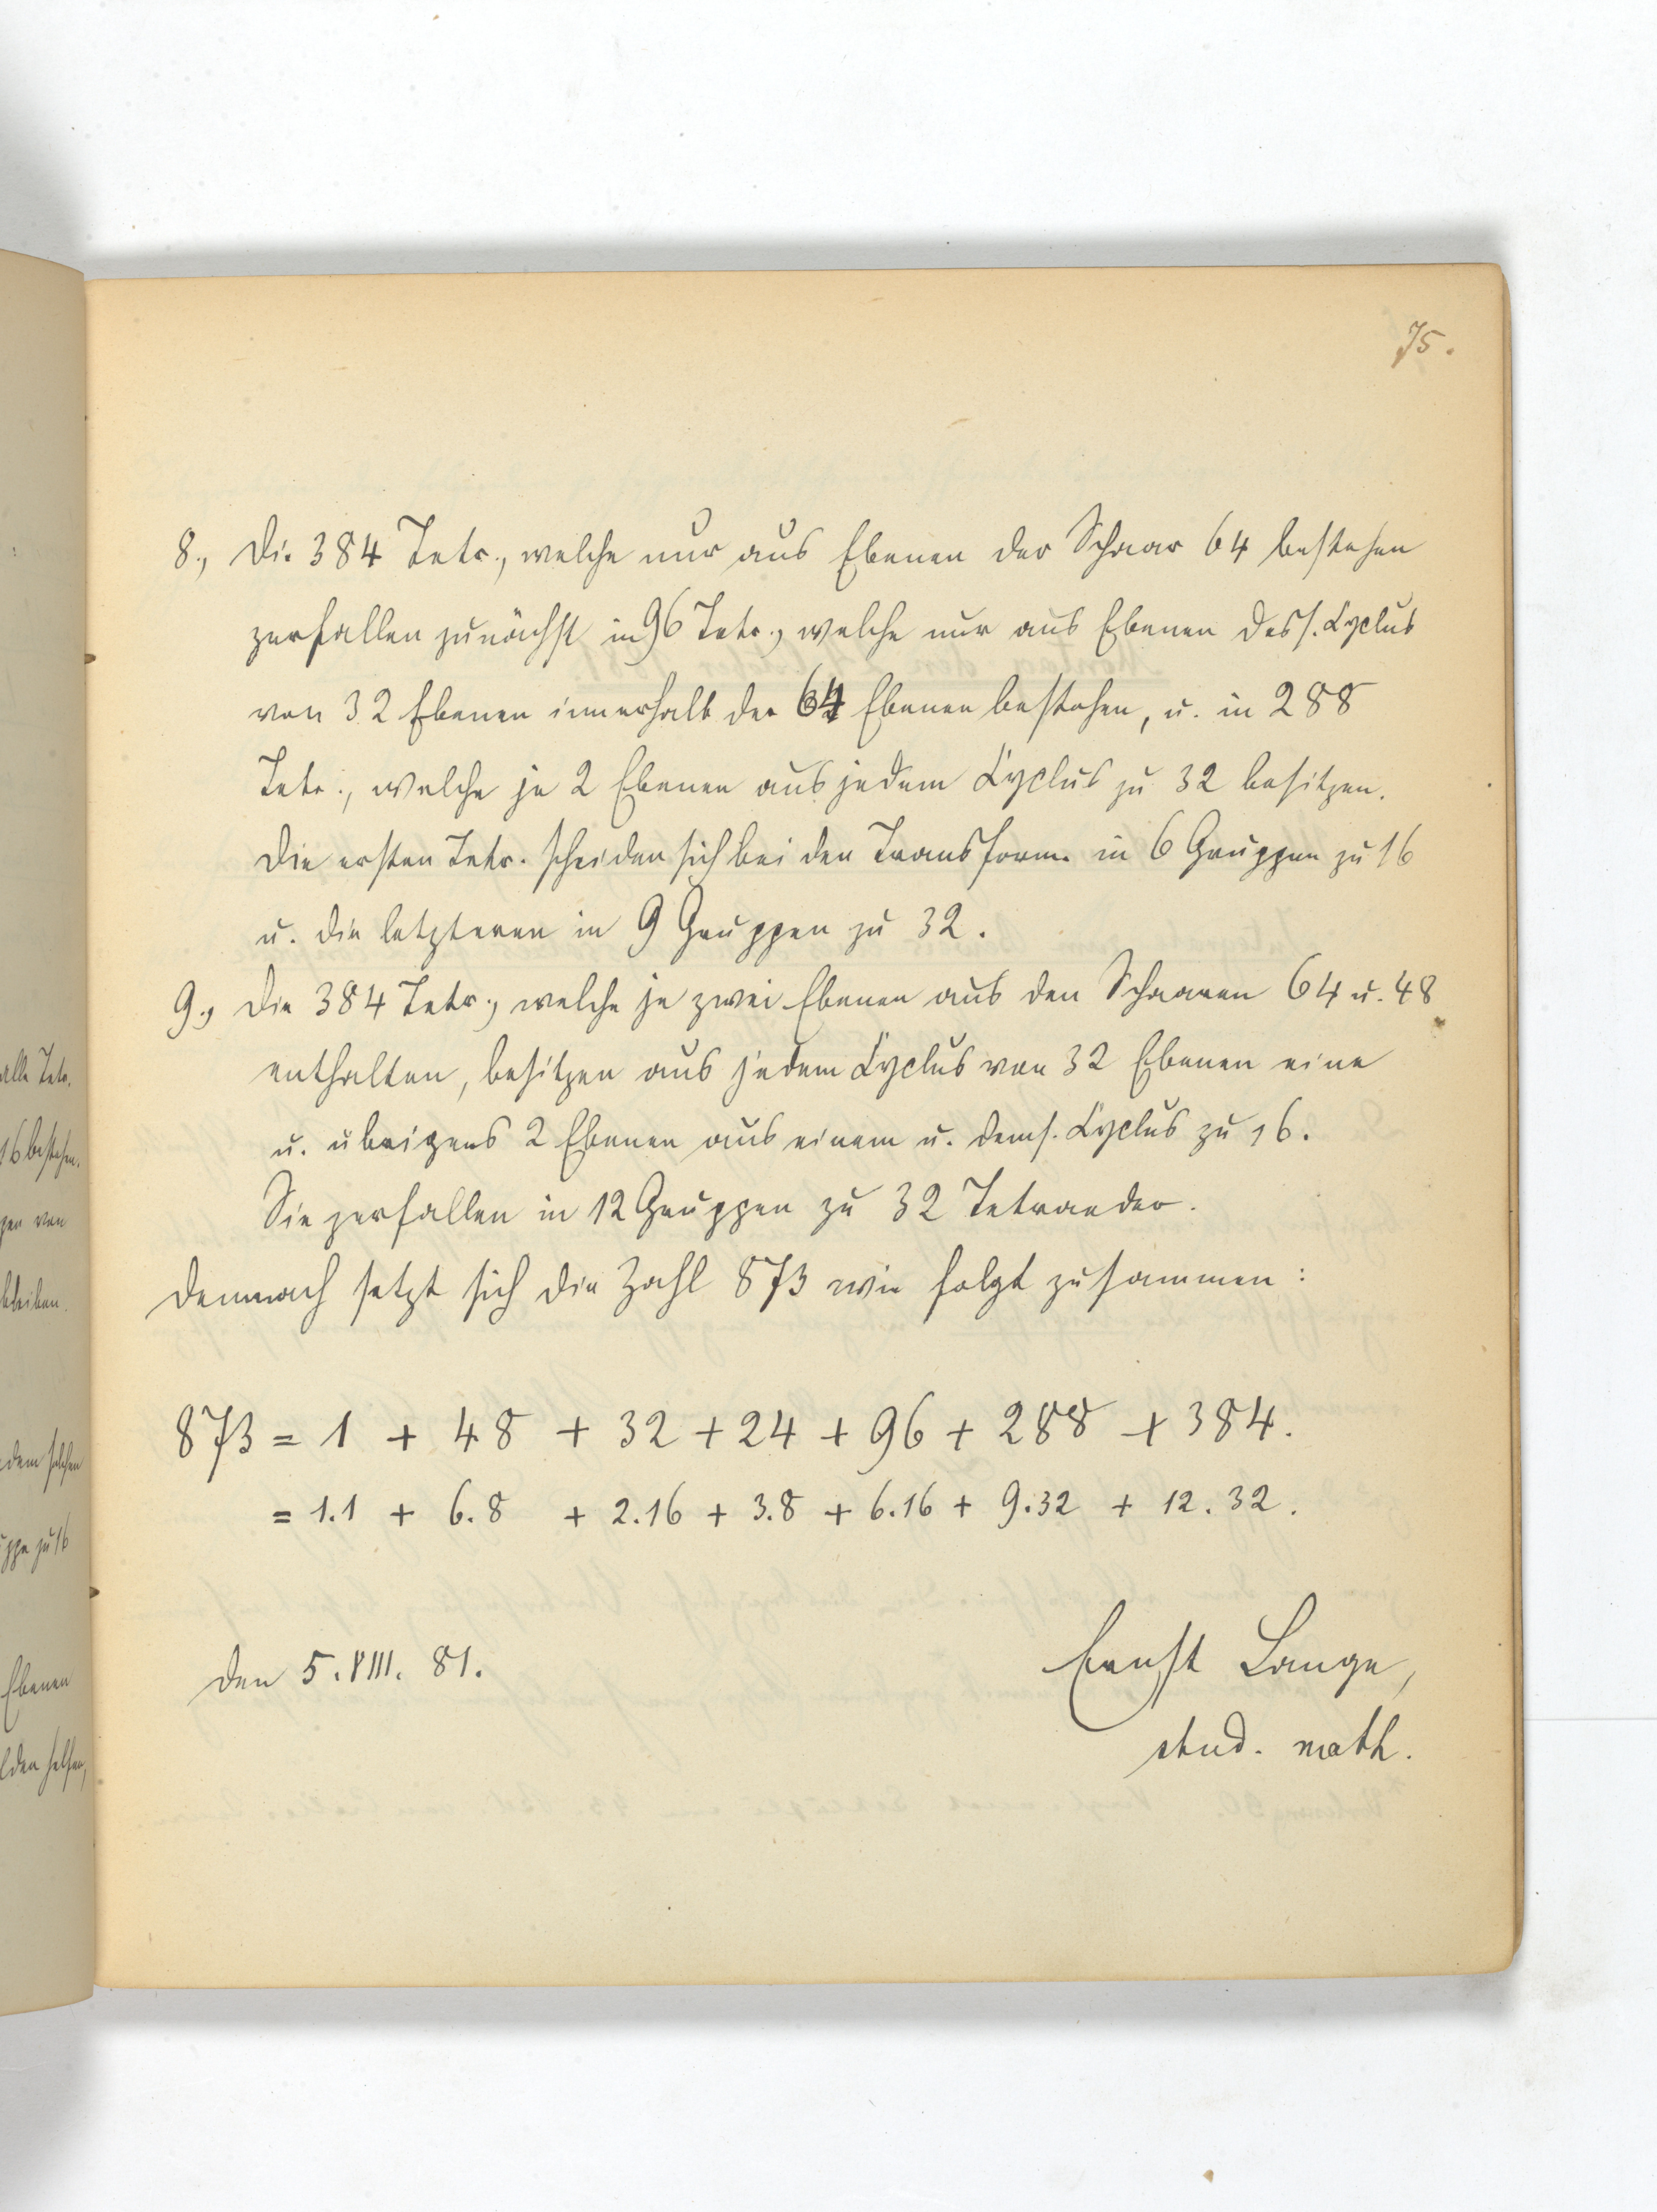 75.
8., Die 384 Tetr., welche nur aus Ebenen der Schaar 64 bestehen
zerfallen zunächst in 96 Tetr., welche nur aus Ebenen dess. Cyclus
von 32 Ebenen innerhalb der 64 Ebenen bestehen, u. in 288
Tetr., welche je 2 Ebenen aus jedem Cyclus zu 32 besitzen.
Die ersten Tetr. scheiden sich bei den Transform. in 6 Gruppen zu 16
u. die letzteren in 9 Gruppen zu 32.
9., Die 384 Tetr., welche je zwei Ebenen aus den Schaaren 64 u. 48
enthalten, besitzen aus jedem Cyclus von 32 Ebenen eine
u. übrigens 2 Ebenen aus einem u. dems. Cyclus zu 16.
Sie zerfallen in 12 Gruppen zu 32 Tetraeder.
Demnach setzt sich die Zahl 873 wie folgt zusammen:
873 = 1 + 48 + 32 + 24 + 96 + 288 + 384.
= 1.1 + 6.8 + 2.16 + 3.8 + 6.16 + 9.32 + 12.32.
Den 5. VIII. 81.
Ernst Lange,
stud. math.
alle Tetr.
16 bestehen.
von
bleiben.
dem solchen
zu 16
Ebenen